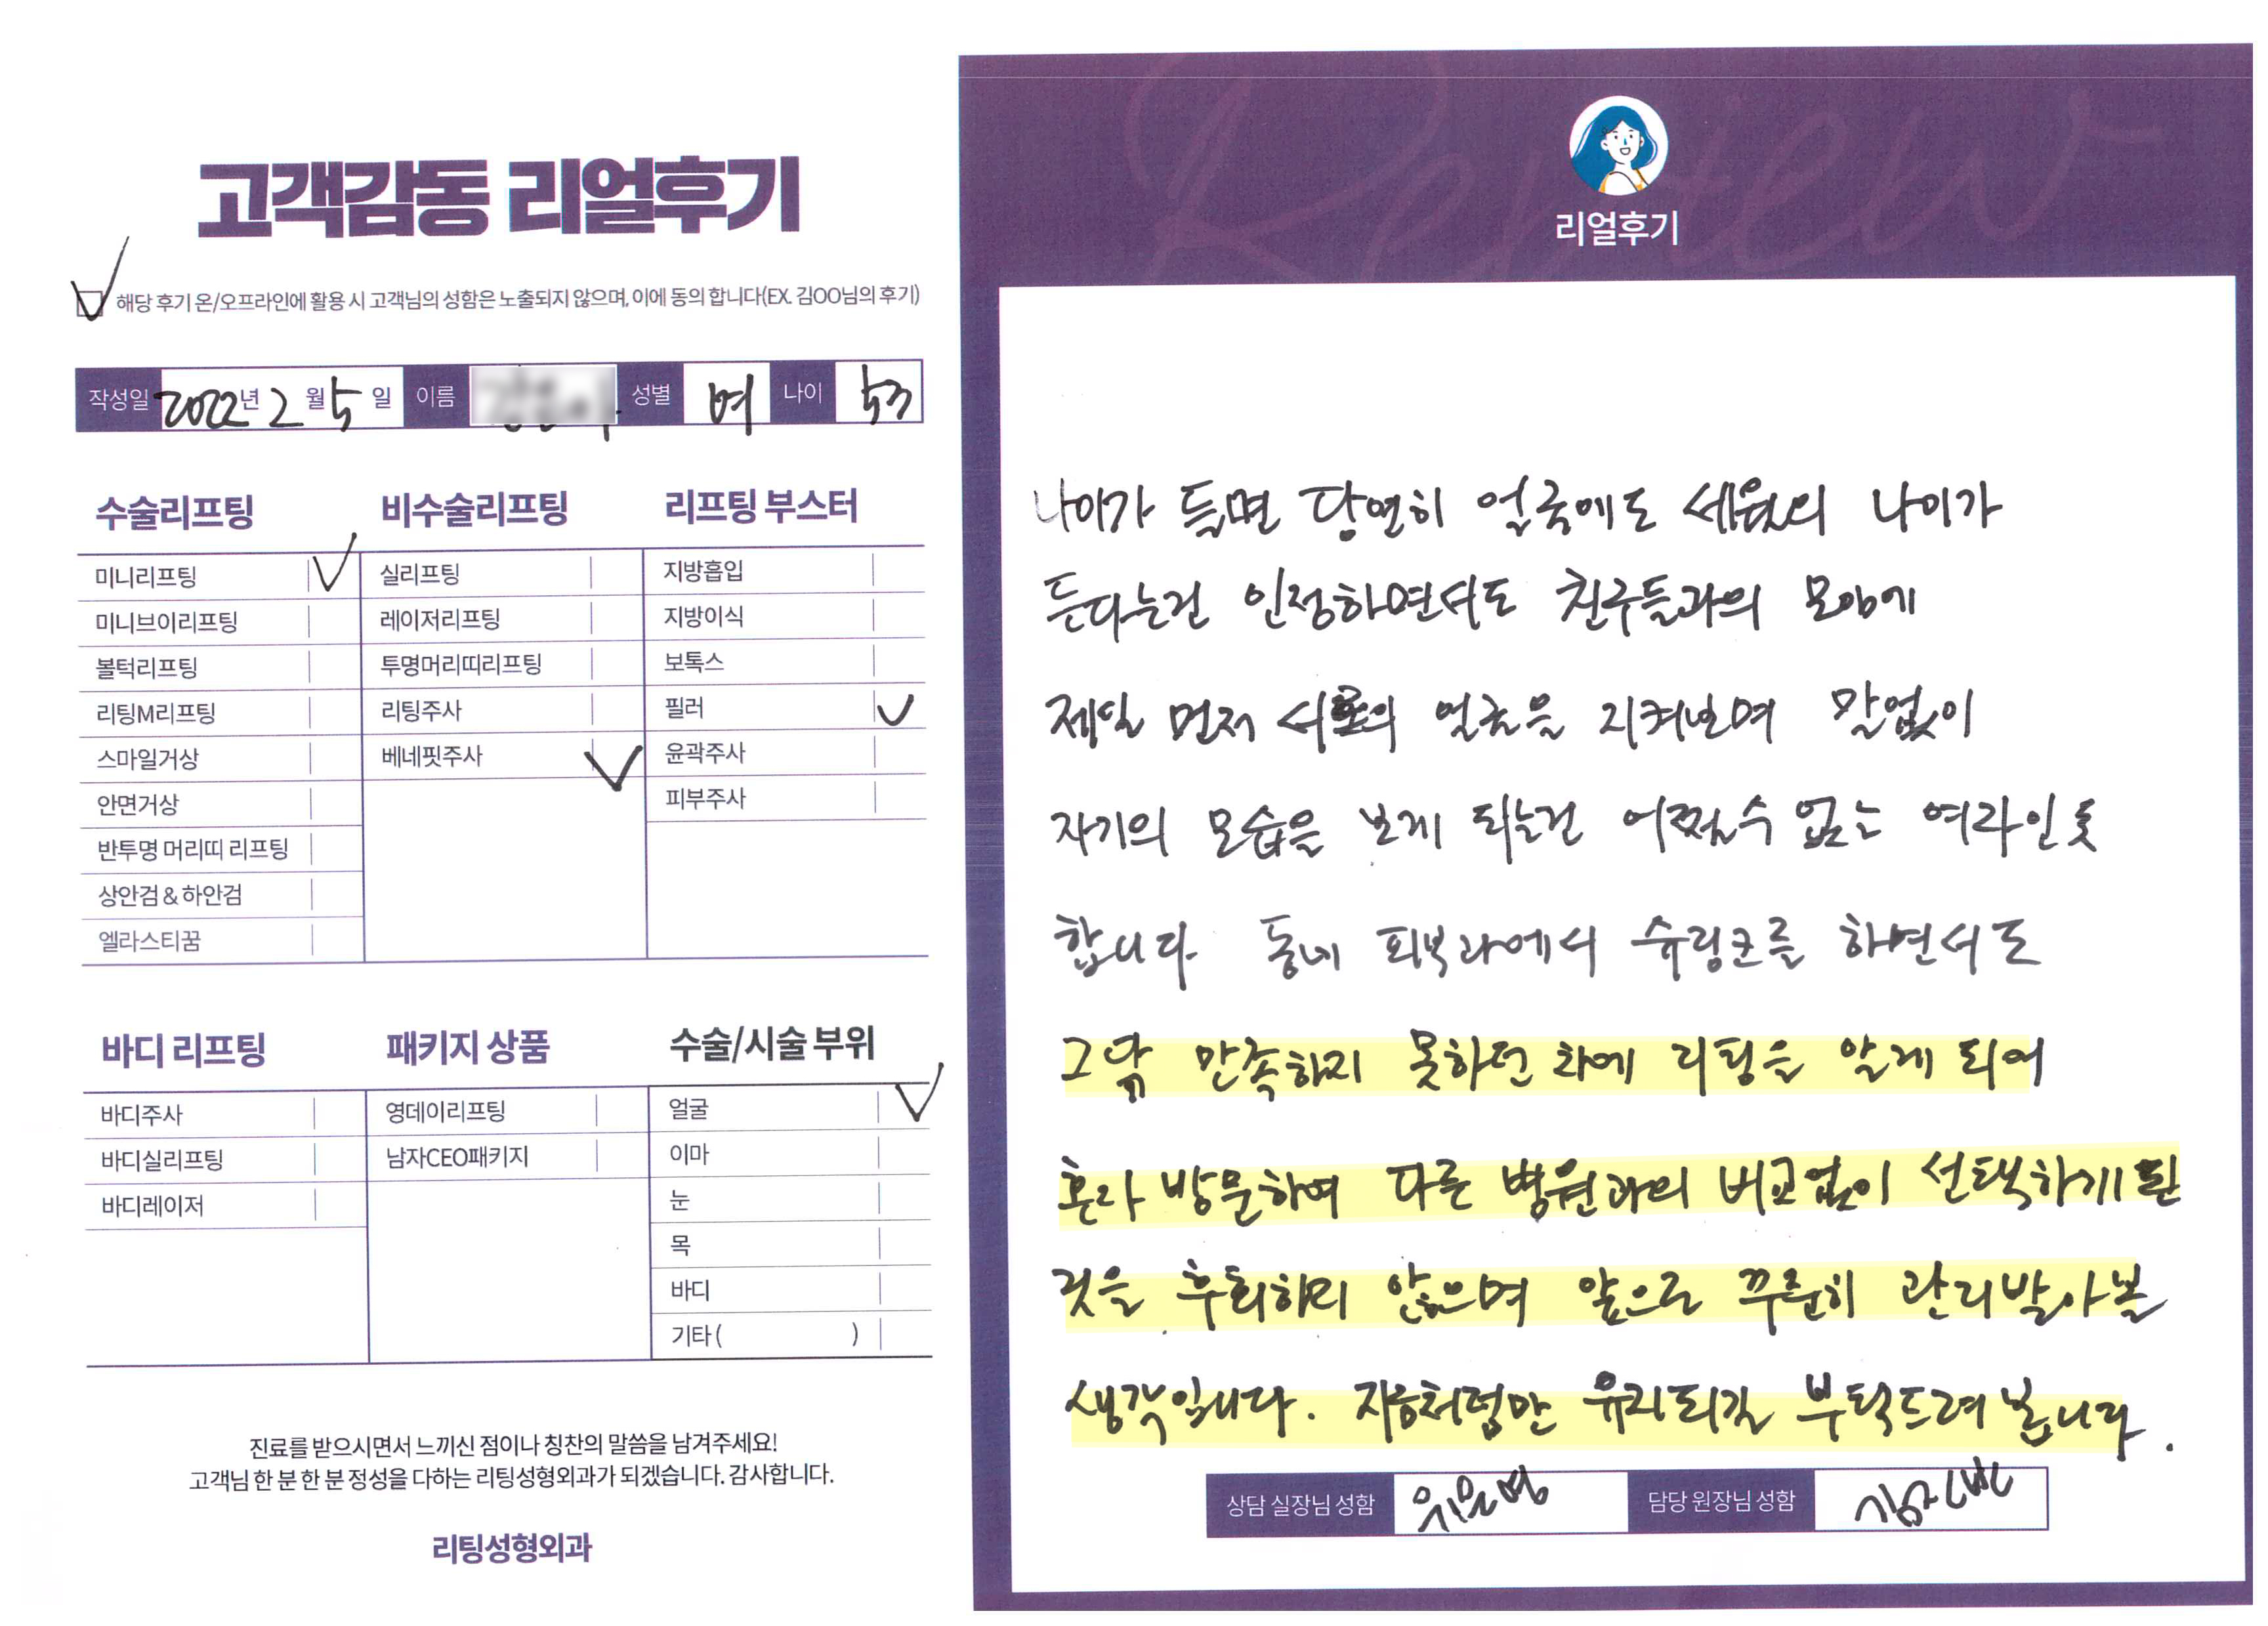 고객감동 리얼후기
해당 후기 온/오프라인에 활용 시 고객님의 성함은 노출되지 않으며, 이에 동의 합니다(EX. 김OO님의 후기)
작성일 2022년 2월 5일 이름 성별 여 나이 53
수술리프팅
미니리프팅
미니브이리프팅
볼턱리프팅
리팅M리프팅
스마일거상
안면거상
반투명 머리띠 리프팅
상안검 & 하안검
엘라스티꿈
비수술리프팅
실리프팅
레이저리프팅
투명머리띠리프팅
리팅주사
베네핏주사
리프팅 부스터
지방흡입
지방이식
보톡스
필러
윤곽주사
피부주사
바디 리프팅
바디주사
바디실리프팅
바디레이저
패키지 상품
영데이리프팅
남자CEO패키지
수술/시술 부위
얼굴
이마
눈
목
바디
기타 ( )
진료를 받으시면서 느끼신 점이나 칭찬의 말씀을 남겨주세요!
고객님 한 분 한 분 정성을 다하는 리팅성형외과가 되겠습니다. 감사합니다.
리팅성형외과
Review
리얼후기
나이가 들면 당연히 얼굴에도 세월의 나이가
든다는건 인정하면서도 친구들과의 모임에
제일 먼저 서로의 얼굴을 지켜보며 말없이
자기의 모습을 보게 되는건 어쩔수 없는 여자인듯
합니다 동네 피부과에서 슈링크를 하면서도
그닥 만족하지 못하던 차에 리팅을 알게 되어
혼자 방문하여 다른 병원과의 비교없이 선택하게 된
것을 후회하지 않으며 앞으로 꾸준히 관리받아볼
생각입니다. 지금처럼만 유지되길 부탁드려 봅니다.
상담 실장님 성함
담당 원장님 성함